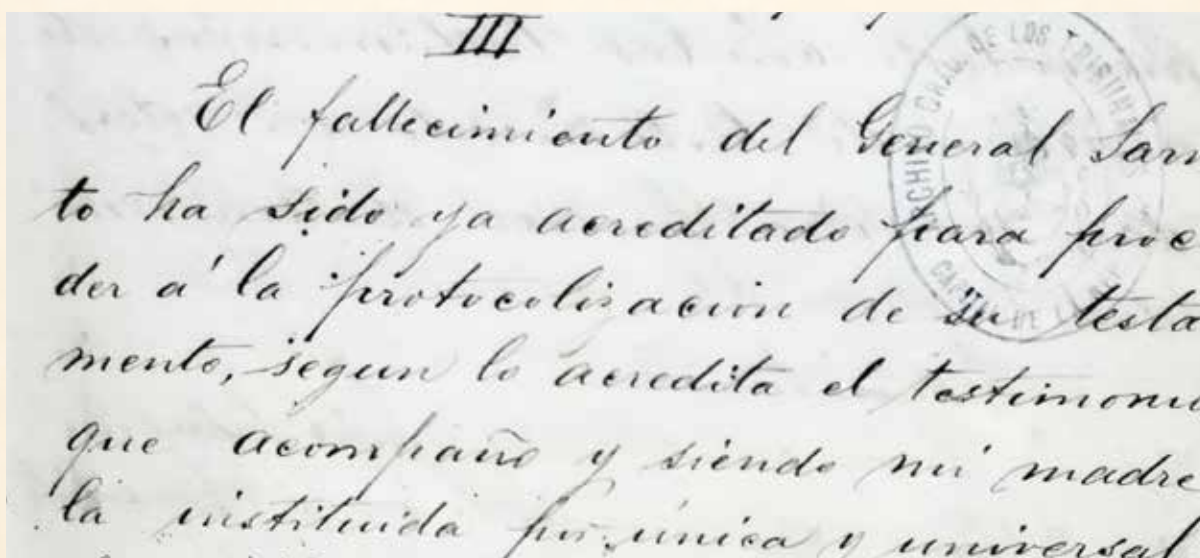 III
El fallecimiento del General Sarm
to ha sido ya acreditado para proce
der á la protocolización de su testa
mento, segun lo acredita el testimonio
que acompaño y siendo mi madre
la instituida por única y universal
ARCHIVO GRAL. DE LOS TRIBUNA
CAPITAL DE LA